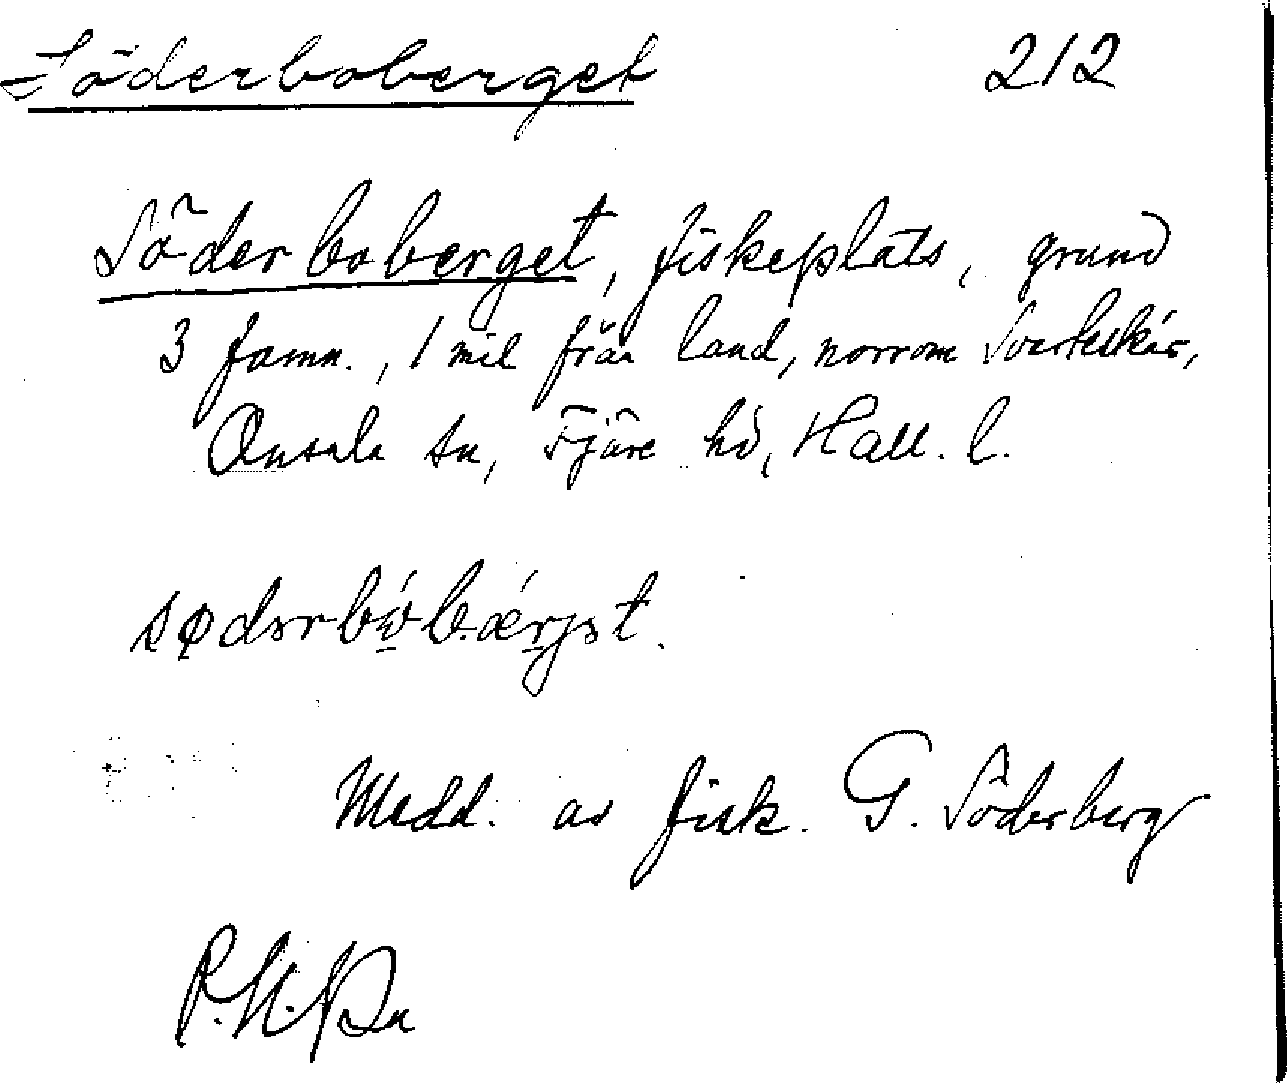 Söderboberget 212
Söderboberget, fiskeplats, grund
3 famn., 1 mil från land, norrom
Onsala sn, Fjäre hd, Hall. l.
Medd. av fisk. G. Söderberg